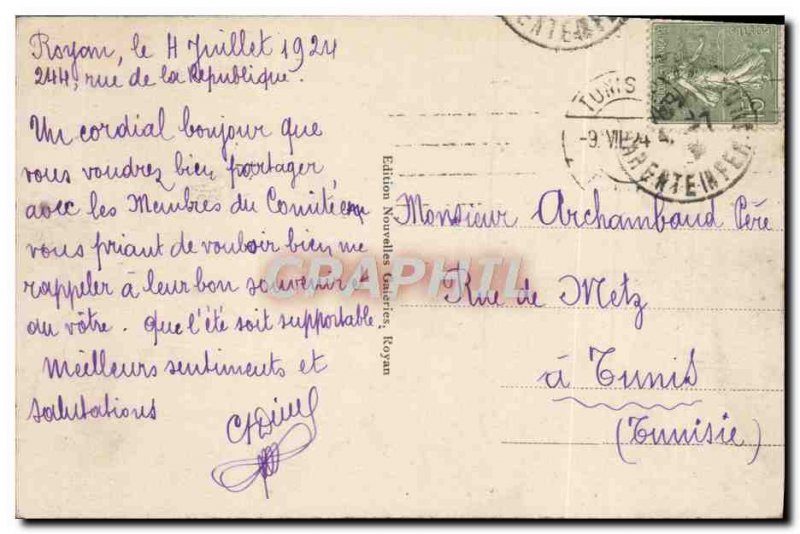 Royan, le 4 Juillet 1924
244, rue de la République.
Un cordial bonjour que
vous voudrez bien partager
avec les Membres du Comité en
vous priant de vouloir bien me
rappeler à leur bon souvenir et
du vôtre. Que l'été soit supportable
Meilleurs sentiments et
salutations
Edition Nouvelles Galeries, Royan
TUNIS
-9.VII.24
Monsieur Archambaud Père
Rue de Metz
à Tunis
(Tunisie)
CPAPHIL